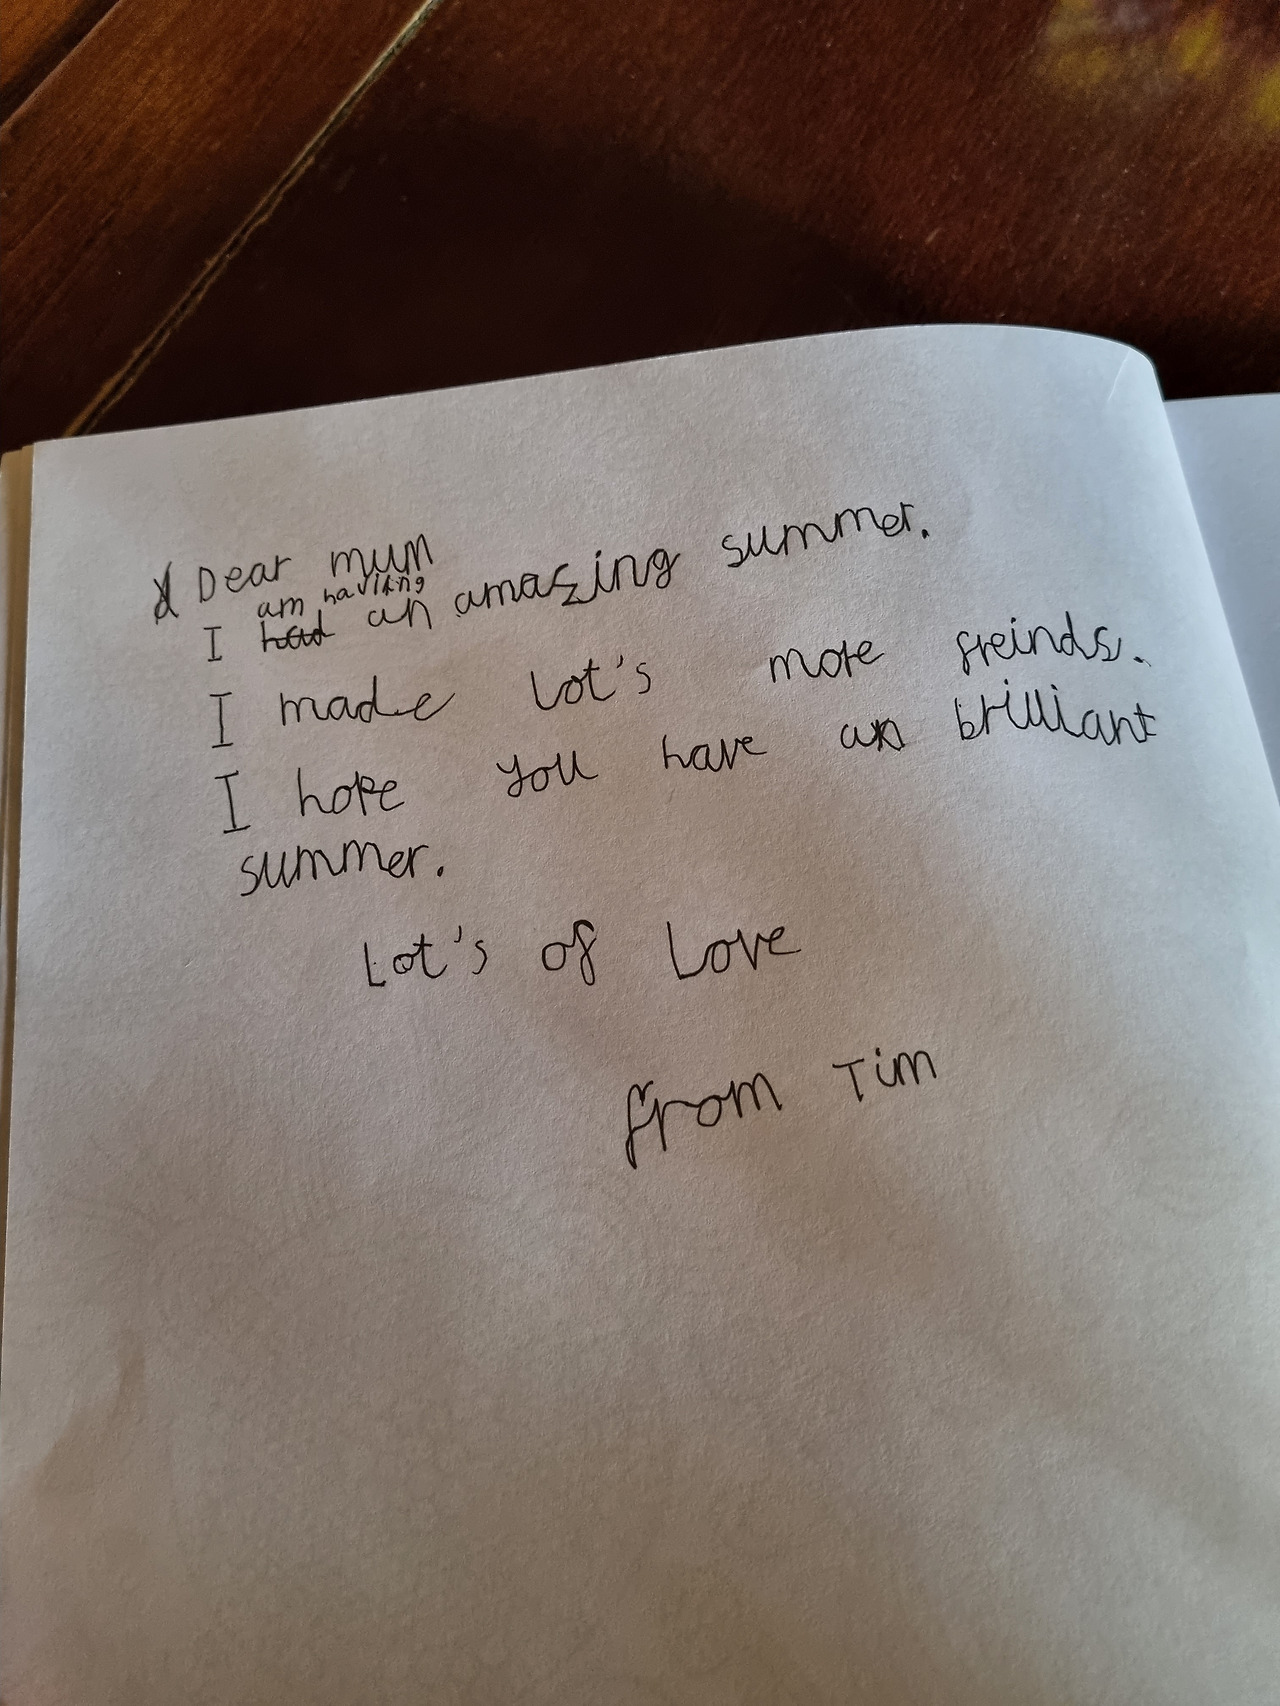 Dear mum
am having
I had an amazing summer.
I made Lot's more freinds.
I hope you have an brilliant
summer.
Lot's of Love
from Tim